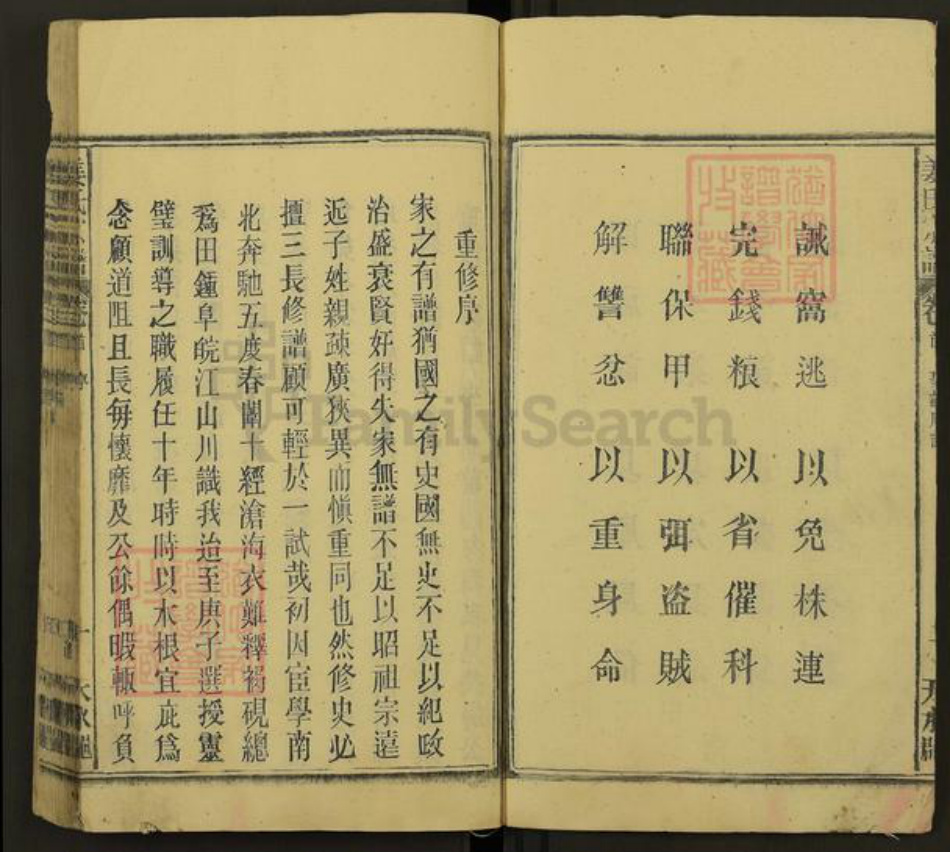 誡窩逃以免株連
完錢糧以省催科
聯保甲以弭盗賊
解讐忿以重身命
重修序
家之有譜猶國之有史國無史不足以紀政
治盛衰賢奸得失家無譜不足以昭祖宗遠
近子姓親疎廣狹異而愼重同也然修史必
擅三長修譜顧可輕於一試哉初因宦學南
北奔馳五度春闈十經滄海衣難釋褐硯總
爲田鍾阜皖江山川識我迨至庚子選授靈
璧訓導之職履任十年時時以水根宜庇爲
念顧道阻且長每懷靡及公餘偶暇輙呼負
FamilySearch